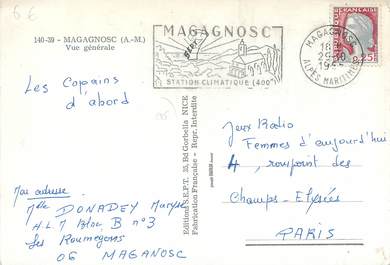 6 E
140-39 - MAGAGNOSC (A.-M.)
Vue générale
MAGAGNOSC
STATION CLIMATIQUE (400m
MAGAGNOSC
18H
25-10
ALPES MARITIMES
0,25F
Les Copains
d'abord
Mon adresse
Mlle DONADEY Maryse
H.L.M Bloc B n°3
Les Roumegons
06 MAGANOSC
Editions S.E.P.T. 35, Bd Gorbella NICE
Fabrication Française - Repr. Interdite
Jeux Radio
Femmes d'aujourd'hui
4, rompoint des
Champs-Elysées
PARIS